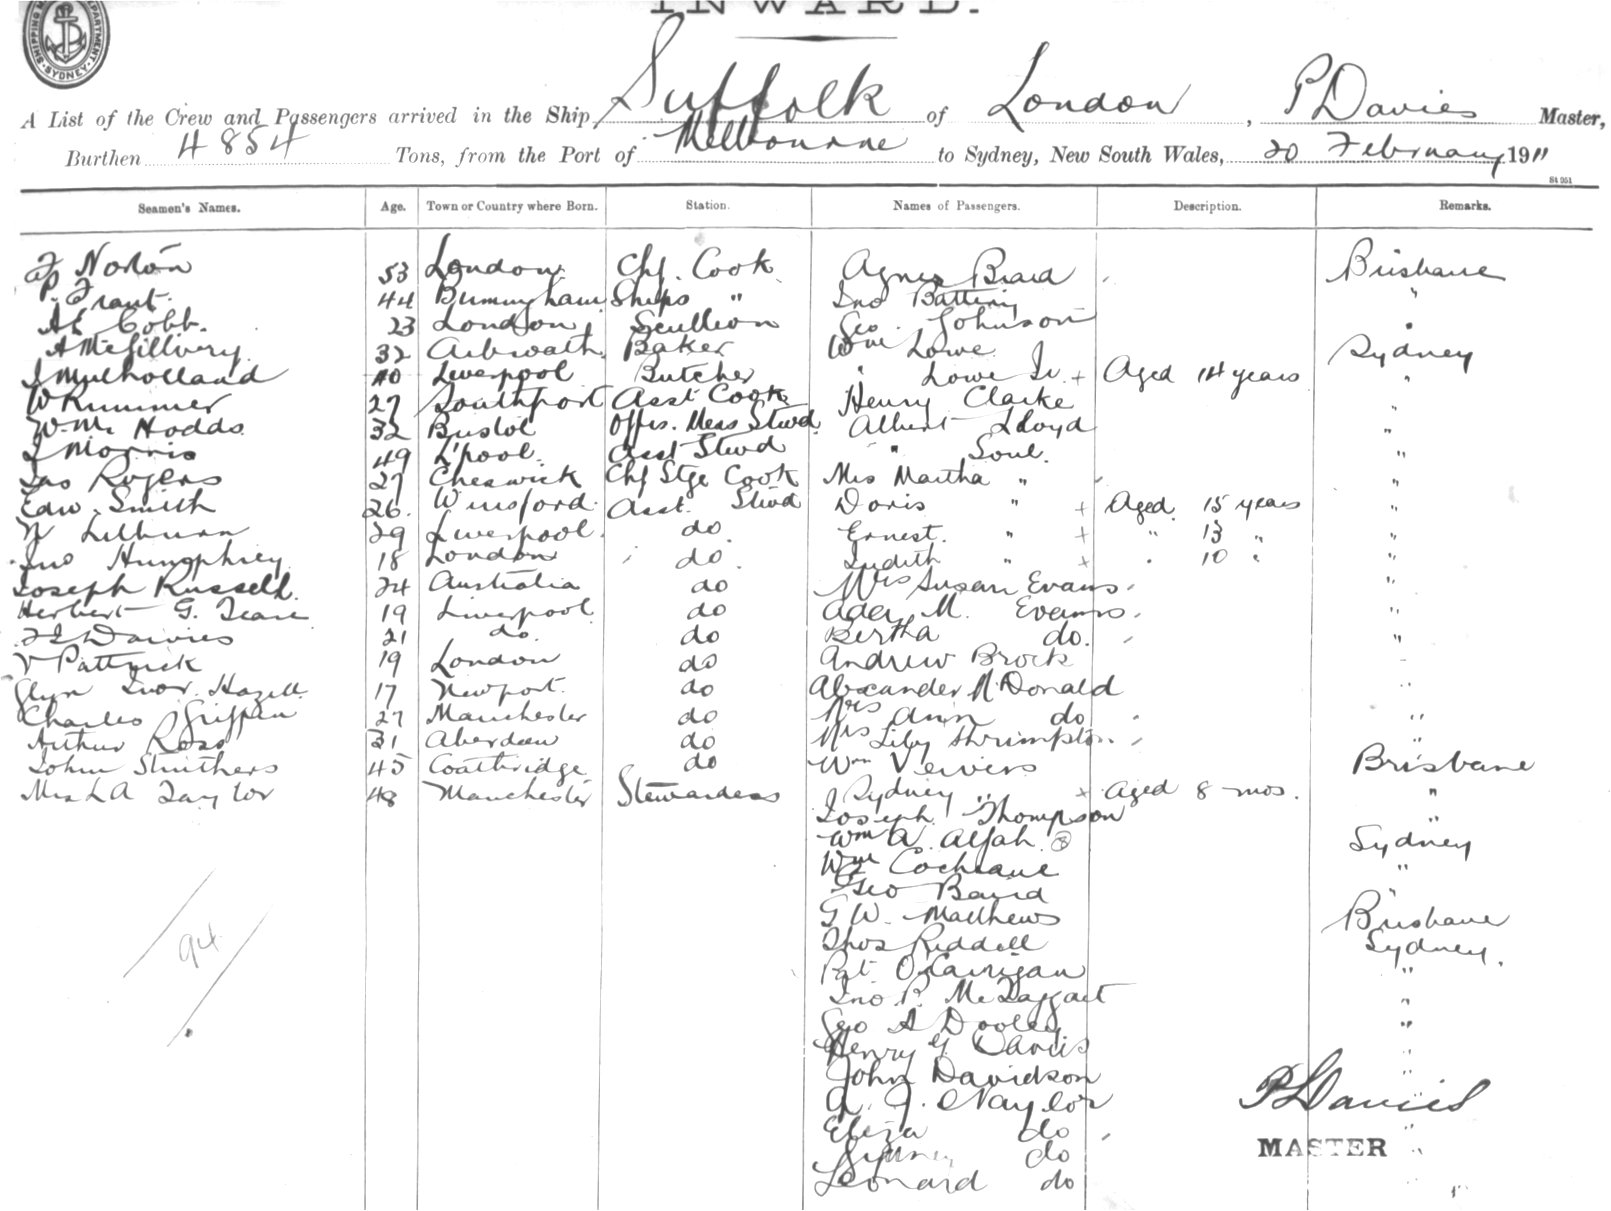 INWARD.
SHIPPING M DEPARTMENT SYDNEY
A List of the Crew and Passengers arrived in the Ship Suffolk of London, P Davies Master,
Burthen 4854 Tons, from the Port of Melbourne to Sydney, New South Wales, 20 February 1911
St 051
Seamen's Names. Age. Town or Country where Born. Station. Names of Passengers. Description. Remarks.
F Norton 53 London Chf. Cook Agnes Baird Brisbane
P. Frant. 44 Birmingham Ships " Jno Battering "
A L Cobb. 23 London Scullion Geo. Johnson "
A McGillvery 32 Arbroath Baker Wm Lowe Sydney
J Mulholland 40 Liverpool Butcher " Lowe Jr + Aged 14 years "
W Rummer 27 Southport Asst Cook Henry Clarke "
W. Mc Hodds 32 Bristol Offrs. Mess Stwd. Albert Lloyd "
J Morris 49 L'pool. Asst Stwd " Soul. "
Jas Rogers 27 Cheswick Chf Stge Cook Mrs Martha " "
Edw. Smith 26. Winsford. Asst. Stwd Doris " + Aged 15 years "
W Lilburn 29 Liverpool. do. Ernest. " + " 13 " "
Jno Humpphrey 18 London do. Judith " + " 10 " "
Joseph Russell. 24 Australia do Mrs Susan Evans "
Herbert G. Teare 19 Liverpool do Ada M. Evans "
Davies 21 do. do Bertha do. "
V Pattrick 19 London do Andrew Brock "
Glyn Ivor Hazell 17 Newport. do Alexander McDonald "
Charles Griffin 27 Manchester do Mrs Ann do "
Arthur Ross 31 Aberdeen do Mrs Lily Shrimpton. "
John Struthers 45 Coatbridge do Wm Veivers Brisbane
Mrs L A Taylor 48 Manchester Stewardess Sydney " + Aged 8 mos. "
Joseph Thompson "
Wm A. Alfah Sydney
Wm Cochrane "
Geo Baird "
G W. Matthews Brisbane
Thos Riddell Sydney.
Pat O'Carrigan "
Jno P. McTaggart "
Geo A Dooley "
Henry G. Davis "
John Davidson "
A. J. Naylor "
Eliza do "
Sydney do "
Leonard do "
94
P Davies
MASTER